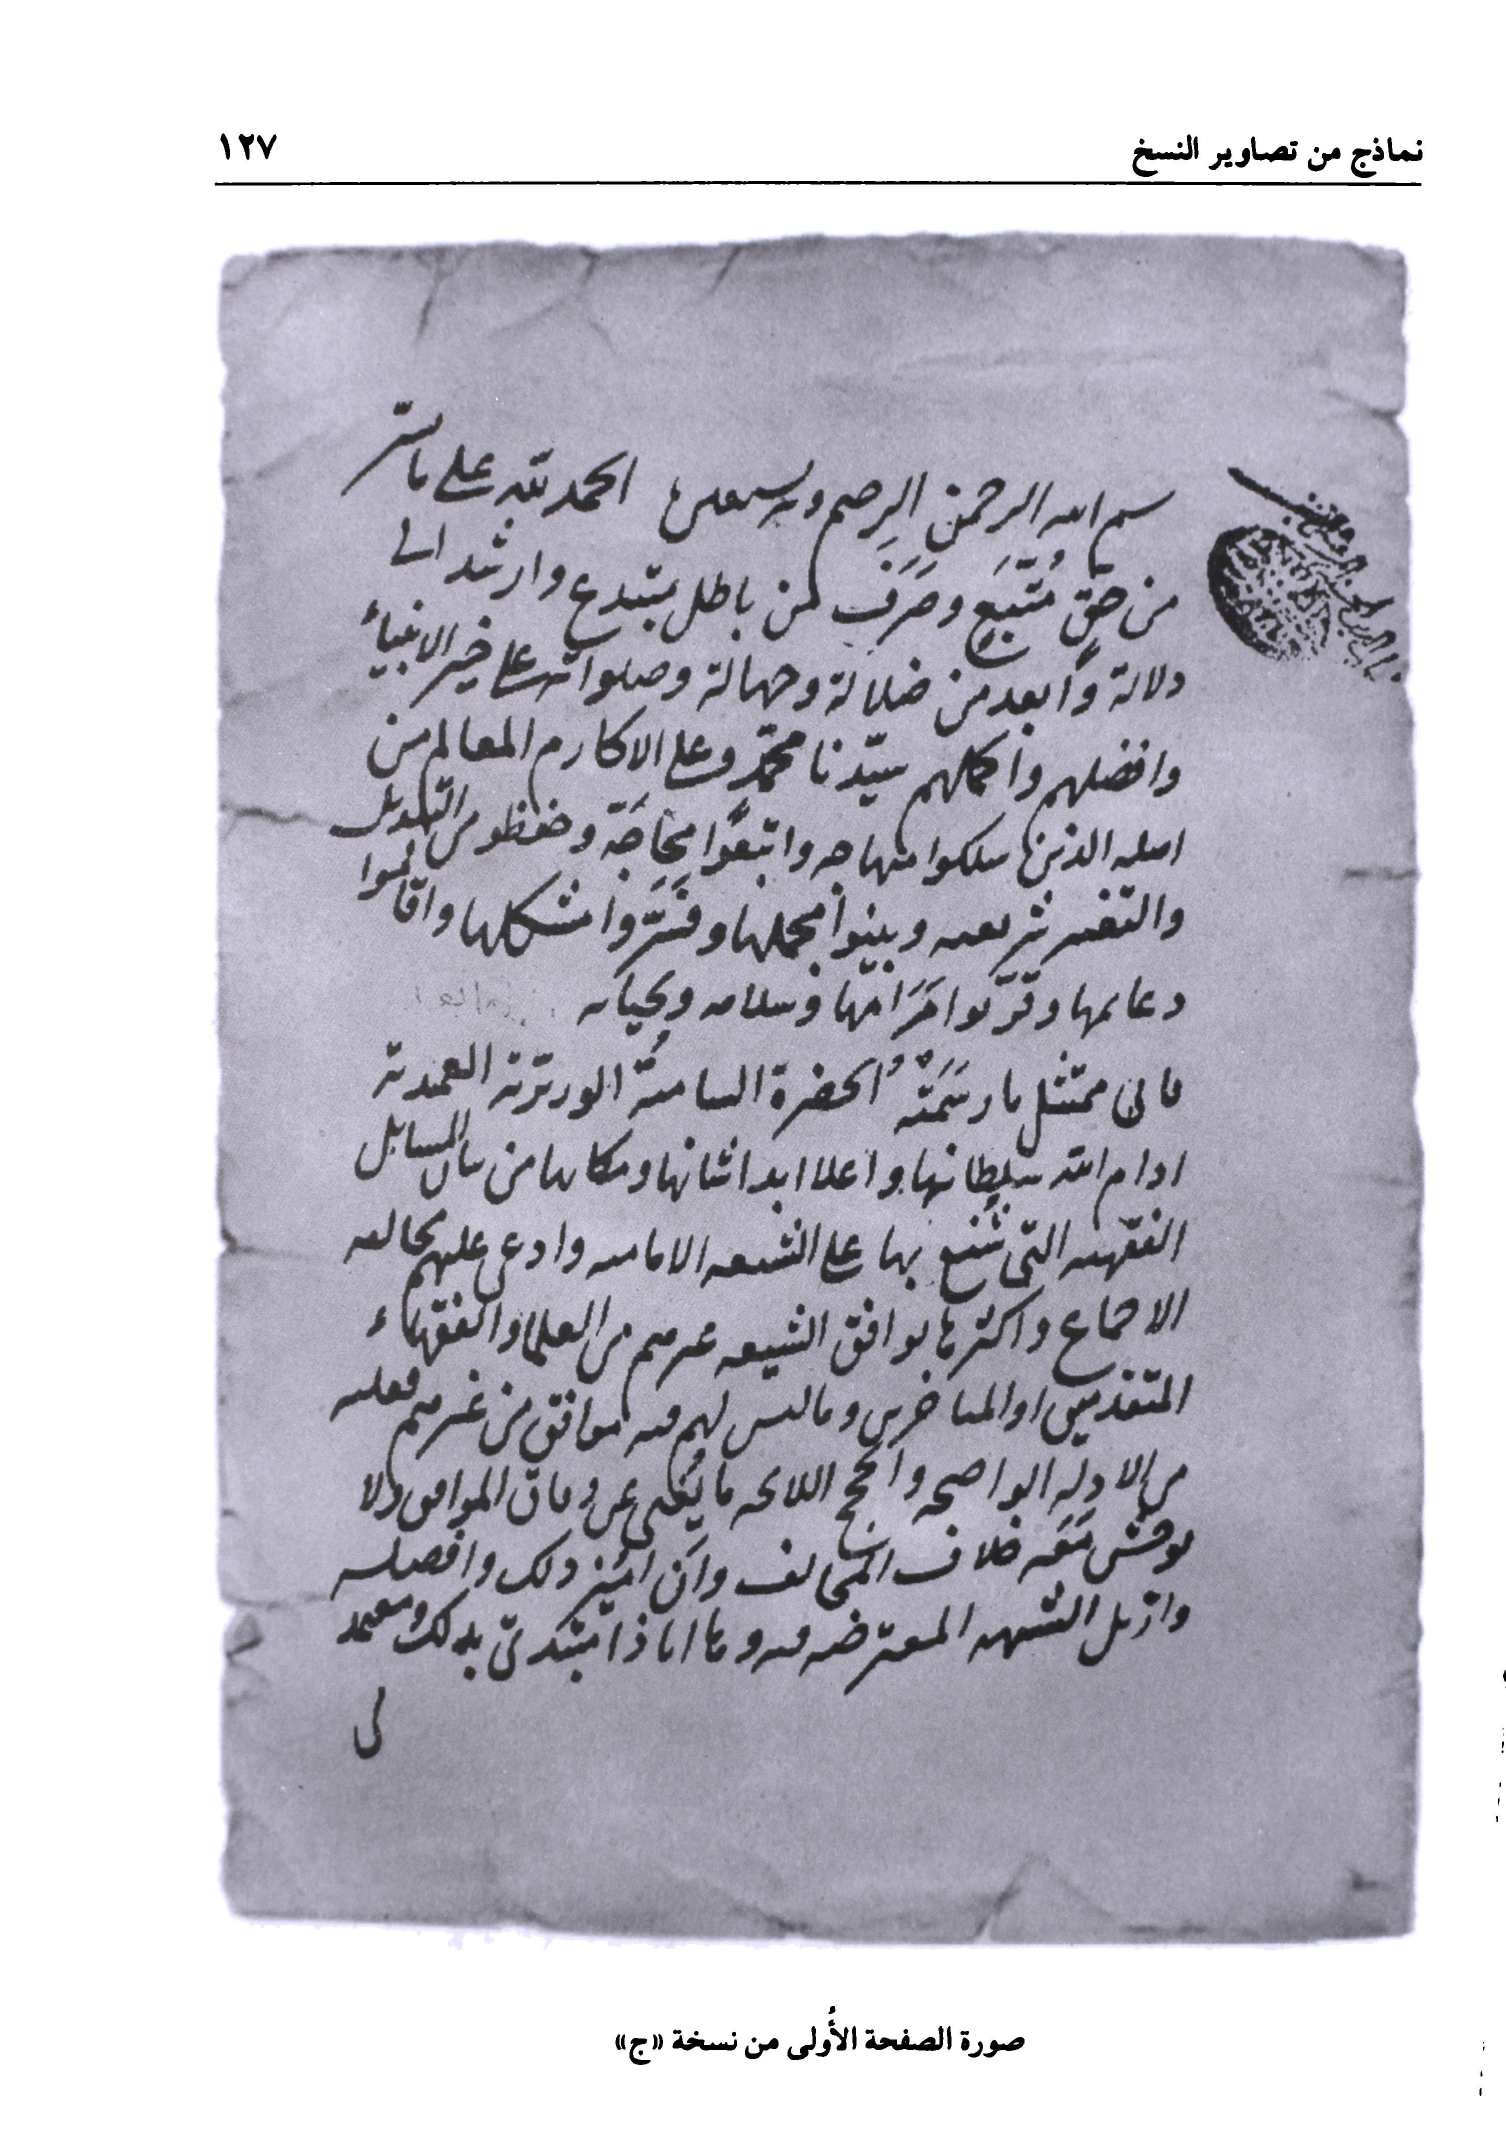 نماذج من تصاوير النسخ
١٢٧
بسم الله الرحمن الرحيم وبه نستعين الحمد لله على ما يسّر
من حقٍّ مُتَّبَعٍ وصَرَفَ من باطل يبتدع وارشد الى
دلالة وابعد من ضلالة وجهالة وصلواته على خير الانبياء
وافضلهم واكملهم سيّدنا محمّد وعلى الاكارم المعالم من
اهله الذين سلكوا منهاجه واتبعوا محاجّه وحفظو من التبديل
والتغير شريعته وبينوا مجملها وفسّروا مشكلها واقاموا
دعايمها وقرّبوا مَرَامَها وسلامه وتحياته
فانى ممتثل ما رسَمَتْه الحضرة السامية الوزيرية العميدية
ادام الله سلطانها واعلا ابدا شانها ومكانها من بيان المسايل
الفقهيه التى شُنّع بها على الشيعه الاماميه وادعى عليهم مخالفه
الاجماع واكثرها يوافق الشيعه غيرهم من العلما والفقهاء
المتقدمين او المتاخرين وما ليس لهم فيه موافق من غيرهم فعليه
من الادله الواضحه والحجج اللائحه ما يُغنى عن وفاق الموافق ولا
يوحش مَعَه خلاف المخالف وان ابيّن ذلك وافصله
وازيل الشبهه المعترضه فيه وها انا ذا مبتدئ بذلك ومعتمد
صورة الصفحة الأُولى من نسخة «ج»